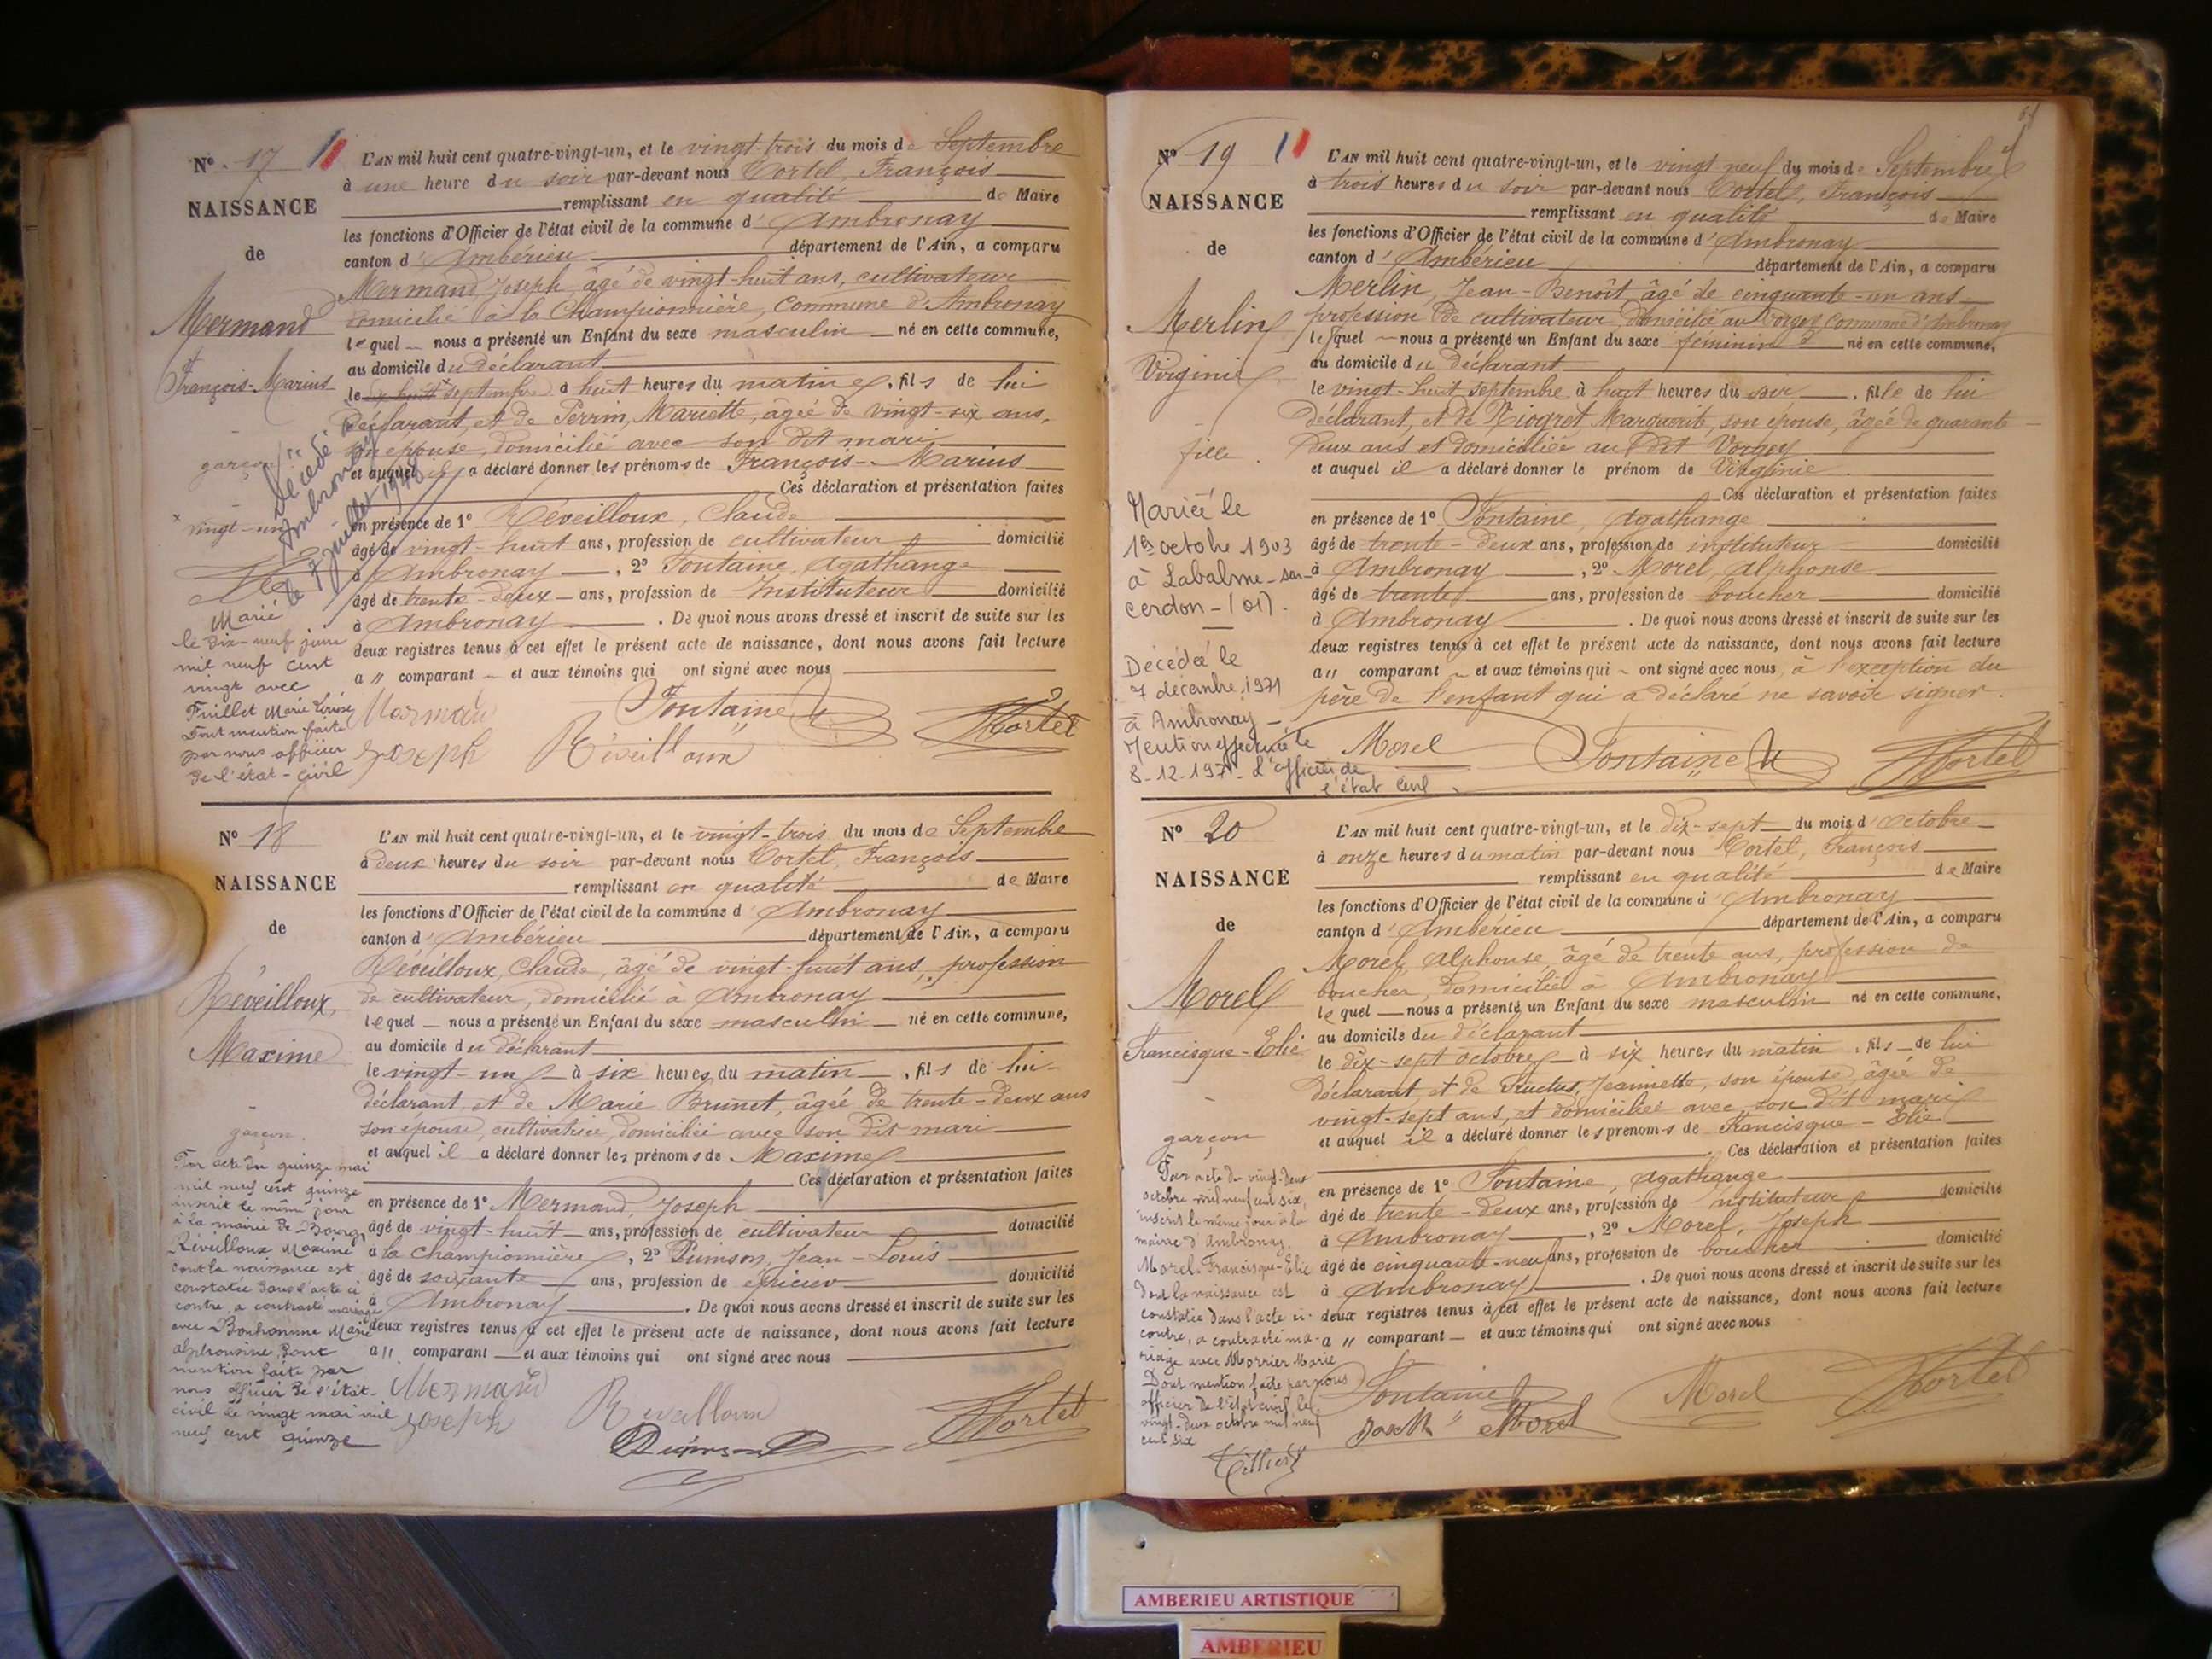 N° 17
NAISSANCE
de
Mermand
François-Marius
garçon
vingt-un
Décédé à
Ambronay
le 7 juillet
Marié
le dix-neuf juin
mil neuf cent
vingt avec
Fuillet Marie Louise
Dont mention faite
par nous officier
de l'état-civil
L'AN mil huit cent quatre-vingt-un, et le vingt-trois du mois de Septembre
à une heure du soir par-devant nous Tortel, François
remplissant en qualité de Maire
les fonctions d'Officier de l'état civil de la commune d'Ambronay
canton d'Ambérieu département de l'Ain, a comparu
Mermand, Joseph, âgé de vingt-huit ans, cultivateur
domicilié à la Championnière, Commune d'Ambronay
lequel nous a présenté un Enfant du sexe masculin né en cette commune,
au domicile du déclarant
le septembre à huit heures du matin, fils de lui
déclarant, et de Perrin, Mariette, âgée de vingt-six ans,
son épouse, domicilié avec son dit mari
et auquel il a déclaré donner les prénoms de François-Marius
Ces déclaration et présentation faites
en présence de 1° Réveilloux, Claude
âgé de vingt-huit ans, profession de cultivateur domicilié
à Ambronay, 2° Fontaine, Agathange
âgé de trente-deux ans, profession de Instituteur domicilié
à Ambronay. De quoi nous avons dressé et inscrit de suite sur les
deux registres tenus à cet effet le présent acte de naissance, dont nous avons fait lecture
a u comparant et aux témoins qui ont signé avec nous
Mermand
Joseph
Fontaine
Réveilloux
Tortel
N° 18
NAISSANCE
de
Réveilloux,
Maxime
garçon.
Par acte du quinze mai
mil neuf cent quinze
inscrit le même jour
à la mairie de Bourg,
Réveilloux, Maxime
dont la naissance est
constatée dans l'acte ci
contre, a contracté mariage
avec Bonhomme Marie
alphonsine, Dont
mention faite par
nous officier de l'état-
civil le vingt mai mil
neuf cent quinze
L'AN mil huit cent quatre-vingt-un, et le vingt-trois du mois de Septembre
à deux heures du soir par-devant nous Tortel, François
remplissant en qualité de Maire
les fonctions d'Officier de l'état civil de la commune d'Ambronay
canton d'Ambérieu département de l'Ain, a comparu
Réveilloux, Claude, âgé de vingt-huit ans, profession
de cultivateur, domicilié à Ambronay
lequel nous a présenté un Enfant du sexe masculin né en cette commune,
au domicile du déclarant
le vingt-un à six heures du matin, fils de lui
déclarant, et de Marie Brunet, âgée de trente-deux ans
son épouse, cultivatrice, domiciliée avec son dit mari
et auquel il a déclaré donner les prénoms de Maxime
Ces déclaration et présentation faites
en présence de 1° Mermand, Joseph
âgé de vingt-huit ans, profession de cultivateur domicilié
à la Championnière, 2° Dumson, Jean-Louis
âgé de soixante ans, profession de épicier domicilié
à Ambronay. De quoi nous avons dressé et inscrit de suite sur les
deux registres tenus à cet effet le présent acte de naissance, dont nous avons fait lecture
au comparant et aux témoins qui ont signé avec nous
Mermand
Joseph
Réveilloux
Tortel
N° 19
NAISSANCE
de
Merlin
Virginie
fille.
Mariée le
1er octobre 1903
à Labalme-sur-
cerdon-(01).
Décédée le
7 décembre 1971
à Ambronay-
Mention effectuée le
8-12-1971- L'officier de
l'état civil.
L'AN mil huit cent quatre-vingt-un, et le vingt neuf du mois de Septembre
à trois heures du soir par-devant nous Tortel, François
remplissant en qualité de Maire
les fonctions d'Officier de l'état civil de la commune d'Ambronay
canton d'Ambérieu département de l'Ain, a comparu
Merlin, Jean-Benoît âgé de cinquante-un ans
profession de cultivateur, domicilié au Vorgey Commune d'Ambronay
lequel nous a présenté un Enfant du sexe feminin né en cette commune,
au domicile du déclarant
le vingt-huit septembre à huit heures du soir, fille de lui
déclarant, et de Niogret Marguerite, son épouse, âgée de quarante-
deux ans et domiciliée au dit Vorgey
et auquel il a déclaré donner le prénom de Virginie
Ces déclaration et présentation faites
en présence de 1° Fontaine, Agathange
âgé de trente-deux ans, profession de instituteur domicilié
à Ambronay, 2° Morel, Alphonse
âgé de trente ans, profession de boucher domicilié
à Ambronay. De quoi nous avons dressé et inscrit de suite sur les
deux registres tenus à cet effet le présent acte de naissance, dont nous avons fait lecture
au comparant et aux témoins qui ont signé avec nous, à l'exception du
père de l'enfant qui a déclaré ne savoir signer.
Morel
Fontaine
Tortel
N° 20
NAISSANCE
de
Morel
Francisque-Elie
garçon
Par acte du vingt-deux
octobre mil neuf cent six,
inscrit le même jour à la
mairie d'Ambronay,
Morel-Francisque-Elie
dont la naissance est
constatée dans l'acte ci-
contre, a contracté ma-
riage avec Morrier Marie
Dont mention faite par nous
officier de l'état civil le
vingt-deux octobre mil neuf
cent six
Tellier
L'AN mil huit cent quatre-vingt-un, et le dix-sept du mois d'octobre
à onze heures du matin par-devant nous Tortel, François
remplissant en qualité de Maire
les fonctions d'Officier de l'état civil de la commune d'Ambronay
canton d'Ambérieu département de l'Ain, a comparu
Morel, Alphonse, âgé de trente ans, profession de
boucher, domicilié à Ambronay
lequel nous a présenté un Enfant du sexe masculin né en cette commune,
au domicile du déclarant
le dix-sept octobre à six heures du matin, fils de lui
déclarant, et de Jeannette, son épouse, âgée de
vingt-sept ans, et domiciliée avec son dit mari
et auquel il a déclaré donner les prénoms de Francisque-Elie
Ces déclaration et présentation faites
en présence de 1° Fontaine, Agathange
âgé de trente-deux ans, profession de Instituteur domicilié
à Ambronay, 2° Morel, Joseph
âgé de cinquante-neuf ans, profession de boucher domicilié
à Ambronay. De quoi nous avons dressé et inscrit de suite sur les
deux registres tenus à cet effet le présent acte de naissance, dont nous avons fait lecture
a u comparant et aux témoins qui ont signé avec nous
Fontaine
Morel
Tortel
Joseph Morel
AMBERIEU ARTISTIQUE
AMBERIEU